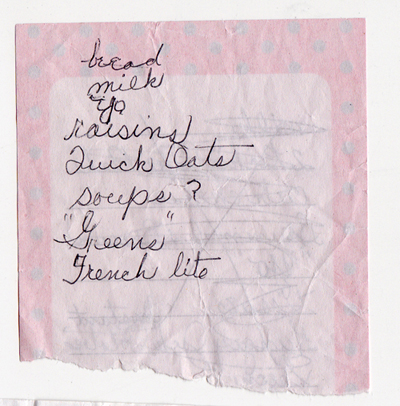 bread
milk
"Yo
raisins
Quick Oats
soups ?
"Greens"
French lite